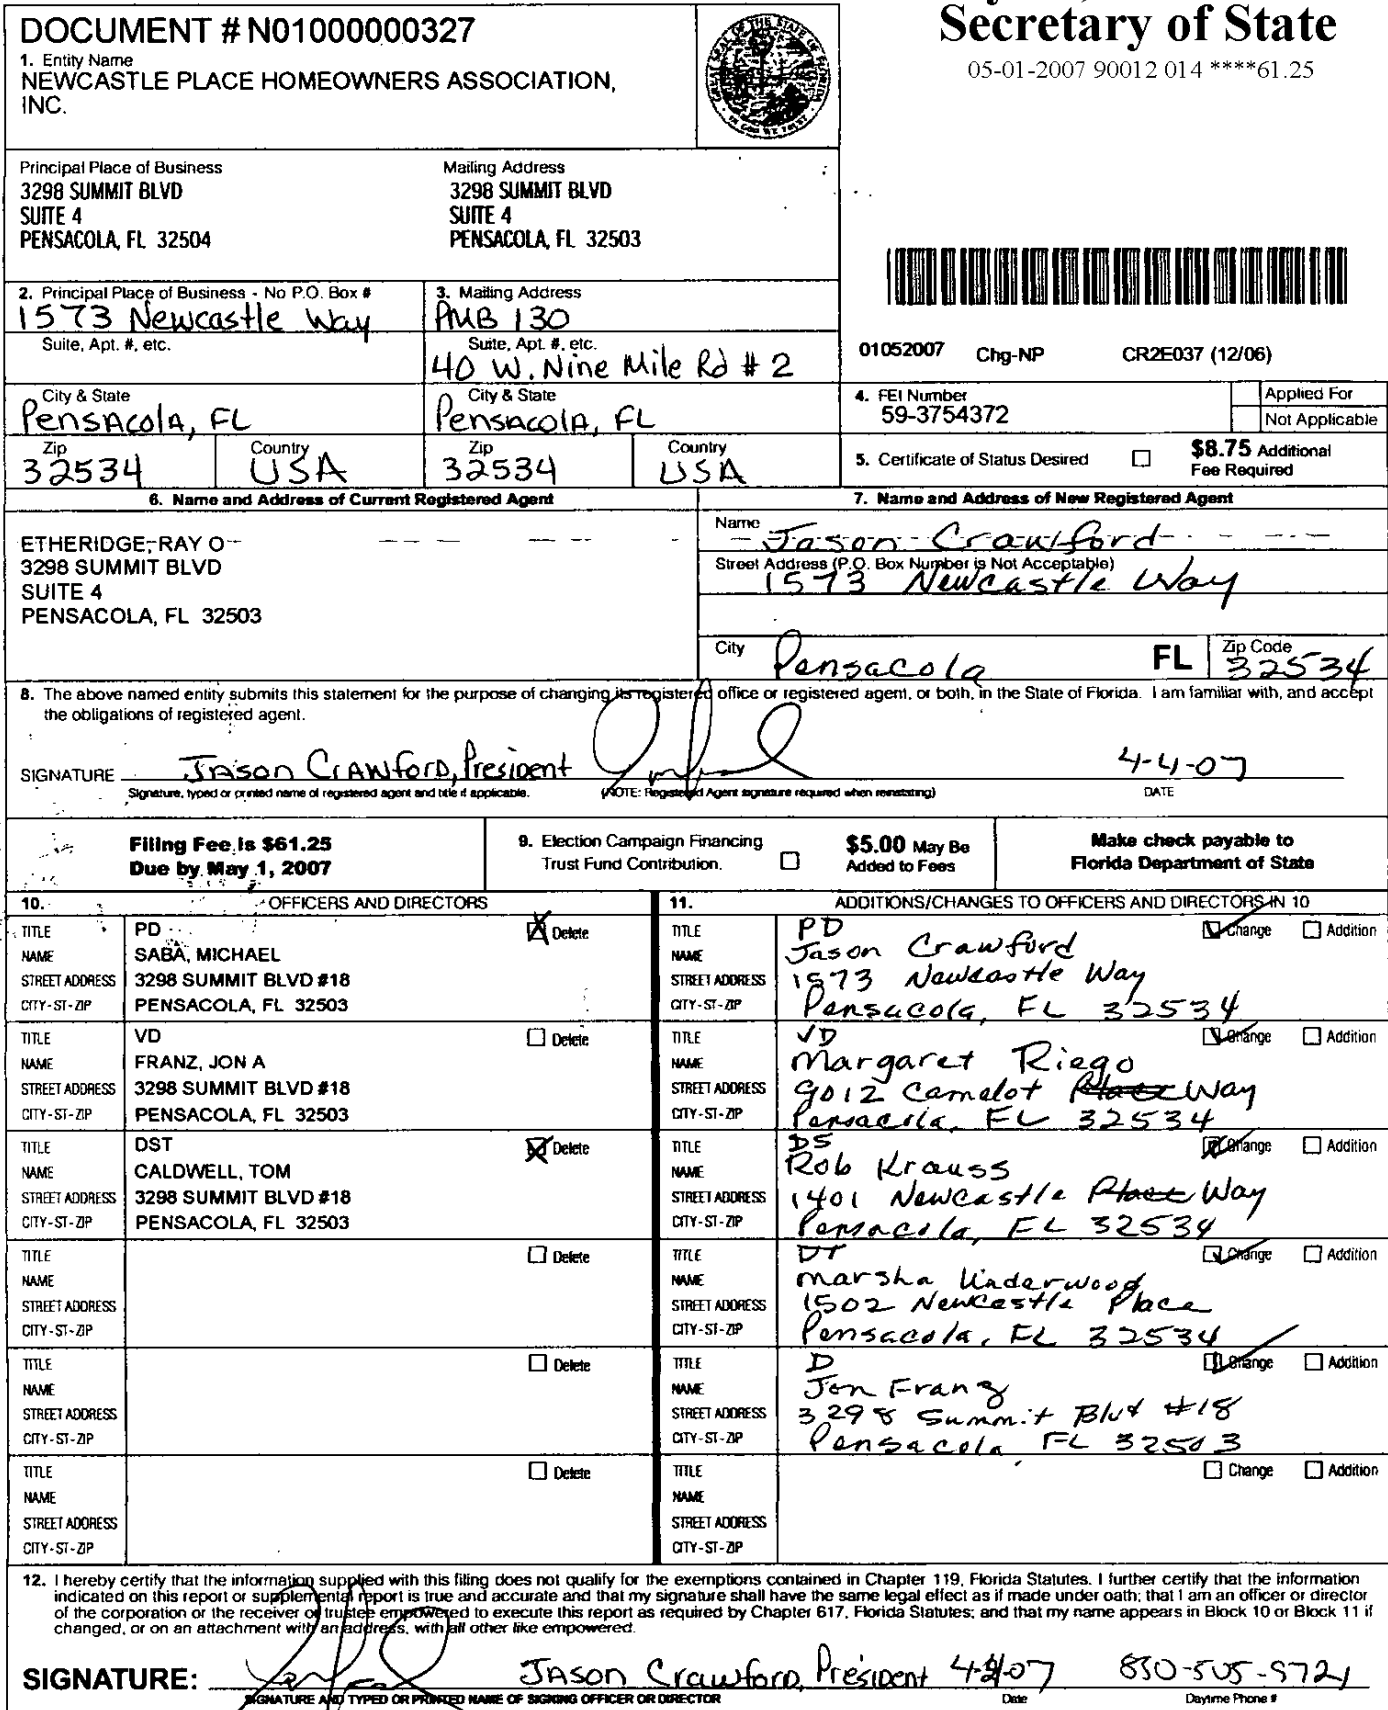 Secretary of State
05-01-2007 90012 014 ****61.25
DOCUMENT # N01000000327
1. Entity Name
NEWCASTLE PLACE HOMEOWNERS ASSOCIATION,
INC.
Principal Place of Business
3298 SUMMIT BLVD
SUITE 4
PENSACOLA, FL 32504
Mailing Address
3298 SUMMIT BLVD
SUITE 4
PENSACOLA, FL 32503
2. Principal Place of Business - No P.O. Box #
1573 Newcastle Way
Suite, Apt. #, etc.
City & State
Pensacola, FL
Zip
32534
Country
USA
3. Mailing Address
PMB 130
Suite, Apt. #, etc.
40 W. Nine Mile Rd # 2
City & State
Pensacola, FL
Zip
32534
Country
USA
01052007 Chg-NP CR2E037 (12/06)
4. FEI Number
59-3754372
Applied For
Not Applicable
5. Certificate of Status Desired
$8.75 Additional
Fee Required
6. Name and Address of Current Registered Agent
ETHERIDGE, RAY O
3298 SUMMIT BLVD
SUITE 4
PENSACOLA, FL 32503
7. Name and Address of New Registered Agent
Name
Jason Crawford
Street Address (P.O. Box Number is Not Acceptable)
1573 Newcastle Way
City
Pensacola
FL
Zip Code
32534
8. The above named entity submits this statement for the purpose of changing its registered office or registered agent, or both, in the State of Florida. I am familiar with, and accept
the obligations of registered agent.
SIGNATURE Jason Crawford, President 4-4-07
Signature, typed or printed name of registered agent and title if applicable. (NOTE: Registered Agent signature required when reinstating) DATE
Filing Fee is $61.25
Due by May 1, 2007
9. Election Campaign Financing
Trust Fund Contribution.
$5.00 May Be
Added to Fees
Make check payable to
Florida Department of State
10. OFFICERS AND DIRECTORS
TITLE PD Delete
NAME SABA, MICHAEL
STREET ADDRESS 3298 SUMMIT BLVD #18
CITY-ST-ZIP PENSACOLA, FL 32503
TITLE VD Delete
NAME FRANZ, JON A
STREET ADDRESS 3298 SUMMIT BLVD #18
CITY-ST-ZIP PENSACOLA, FL 32503
TITLE DST Delete
NAME CALDWELL, TOM
STREET ADDRESS 3298 SUMMIT BLVD #18
CITY-ST-ZIP PENSACOLA, FL 32503
TITLE Delete
NAME
STREET ADDRESS
CITY-ST-ZIP
TITLE Delete
NAME
STREET ADDRESS
CITY-ST-ZIP
TITLE Delete
NAME
STREET ADDRESS
CITY-ST-ZIP
11. ADDITIONS/CHANGES TO OFFICERS AND DIRECTORS IN 10
TITLE PD Change Addition
NAME Jason Crawford
STREET ADDRESS 1573 Newcastle Way
CITY-ST-ZIP Pensacola, FL 32534
TITLE VD Change Addition
NAME Margaret Riego
STREET ADDRESS 9012 Camelot Place Way
CITY-ST-ZIP Pensacola, FL 32534
TITLE DS Change Addition
NAME Rob Krauss
STREET ADDRESS 1401 Newcastle Place Way
CITY-ST-ZIP Pensacola, FL 32534
TITLE DT Change Addition
NAME Marsha Underwood
STREET ADDRESS 1502 Newcastle Place
CITY-ST-ZIP Pensacola, FL 32534
TITLE D Change Addition
NAME Jon Franz
STREET ADDRESS 3298 Summit Blvd #18
CITY-ST-ZIP Pensacola FL 32503
TITLE Change Addition
NAME
STREET ADDRESS
CITY-ST-ZIP
12. I hereby certify that the information supplied with this filing does not qualify for the exemptions contained in Chapter 119, Florida Statutes. I further certify that the information
indicated on this report or supplemental report is true and accurate and that my signature shall have the same legal effect as if made under oath; that I am an officer or director
of the corporation or the receiver or trustee empowered to execute this report as required by Chapter 617, Florida Statutes; and that my name appears in Block 10 or Block 11 if
changed, or on an attachment with an address, with all other like empowered.
SIGNATURE: Jason Crawford, President 850-505-9721
SIGNATURE AND TYPED OR PRINTED NAME OF SIGNING OFFICER OR DIRECTOR Date Daytime Phone #